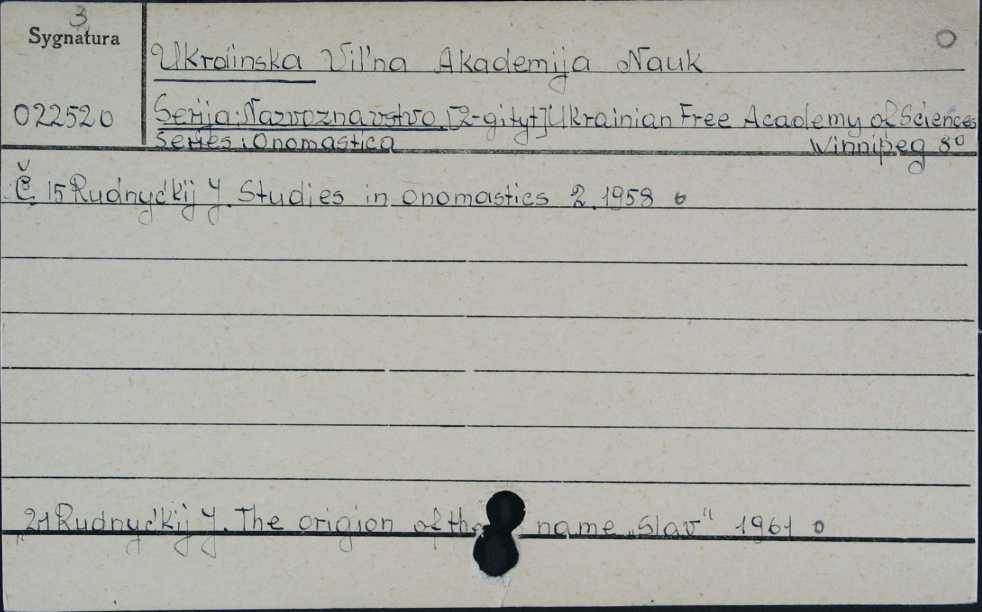 3
Sygnatura
O
Ukraïnska Vil'na Akademija Nauk
022520
Serija: Nazvoznavstvo. [Z-gityt] Ukrainian Free Academy of Sciences
Series: Onomastica
Winnipeg 8°
Č. 15 Rudnyc'kij J. Studies in onomastics 2. 1958 o
„ 21 Rudnyc'kij J. The origion of the name „Slav" 1961 o